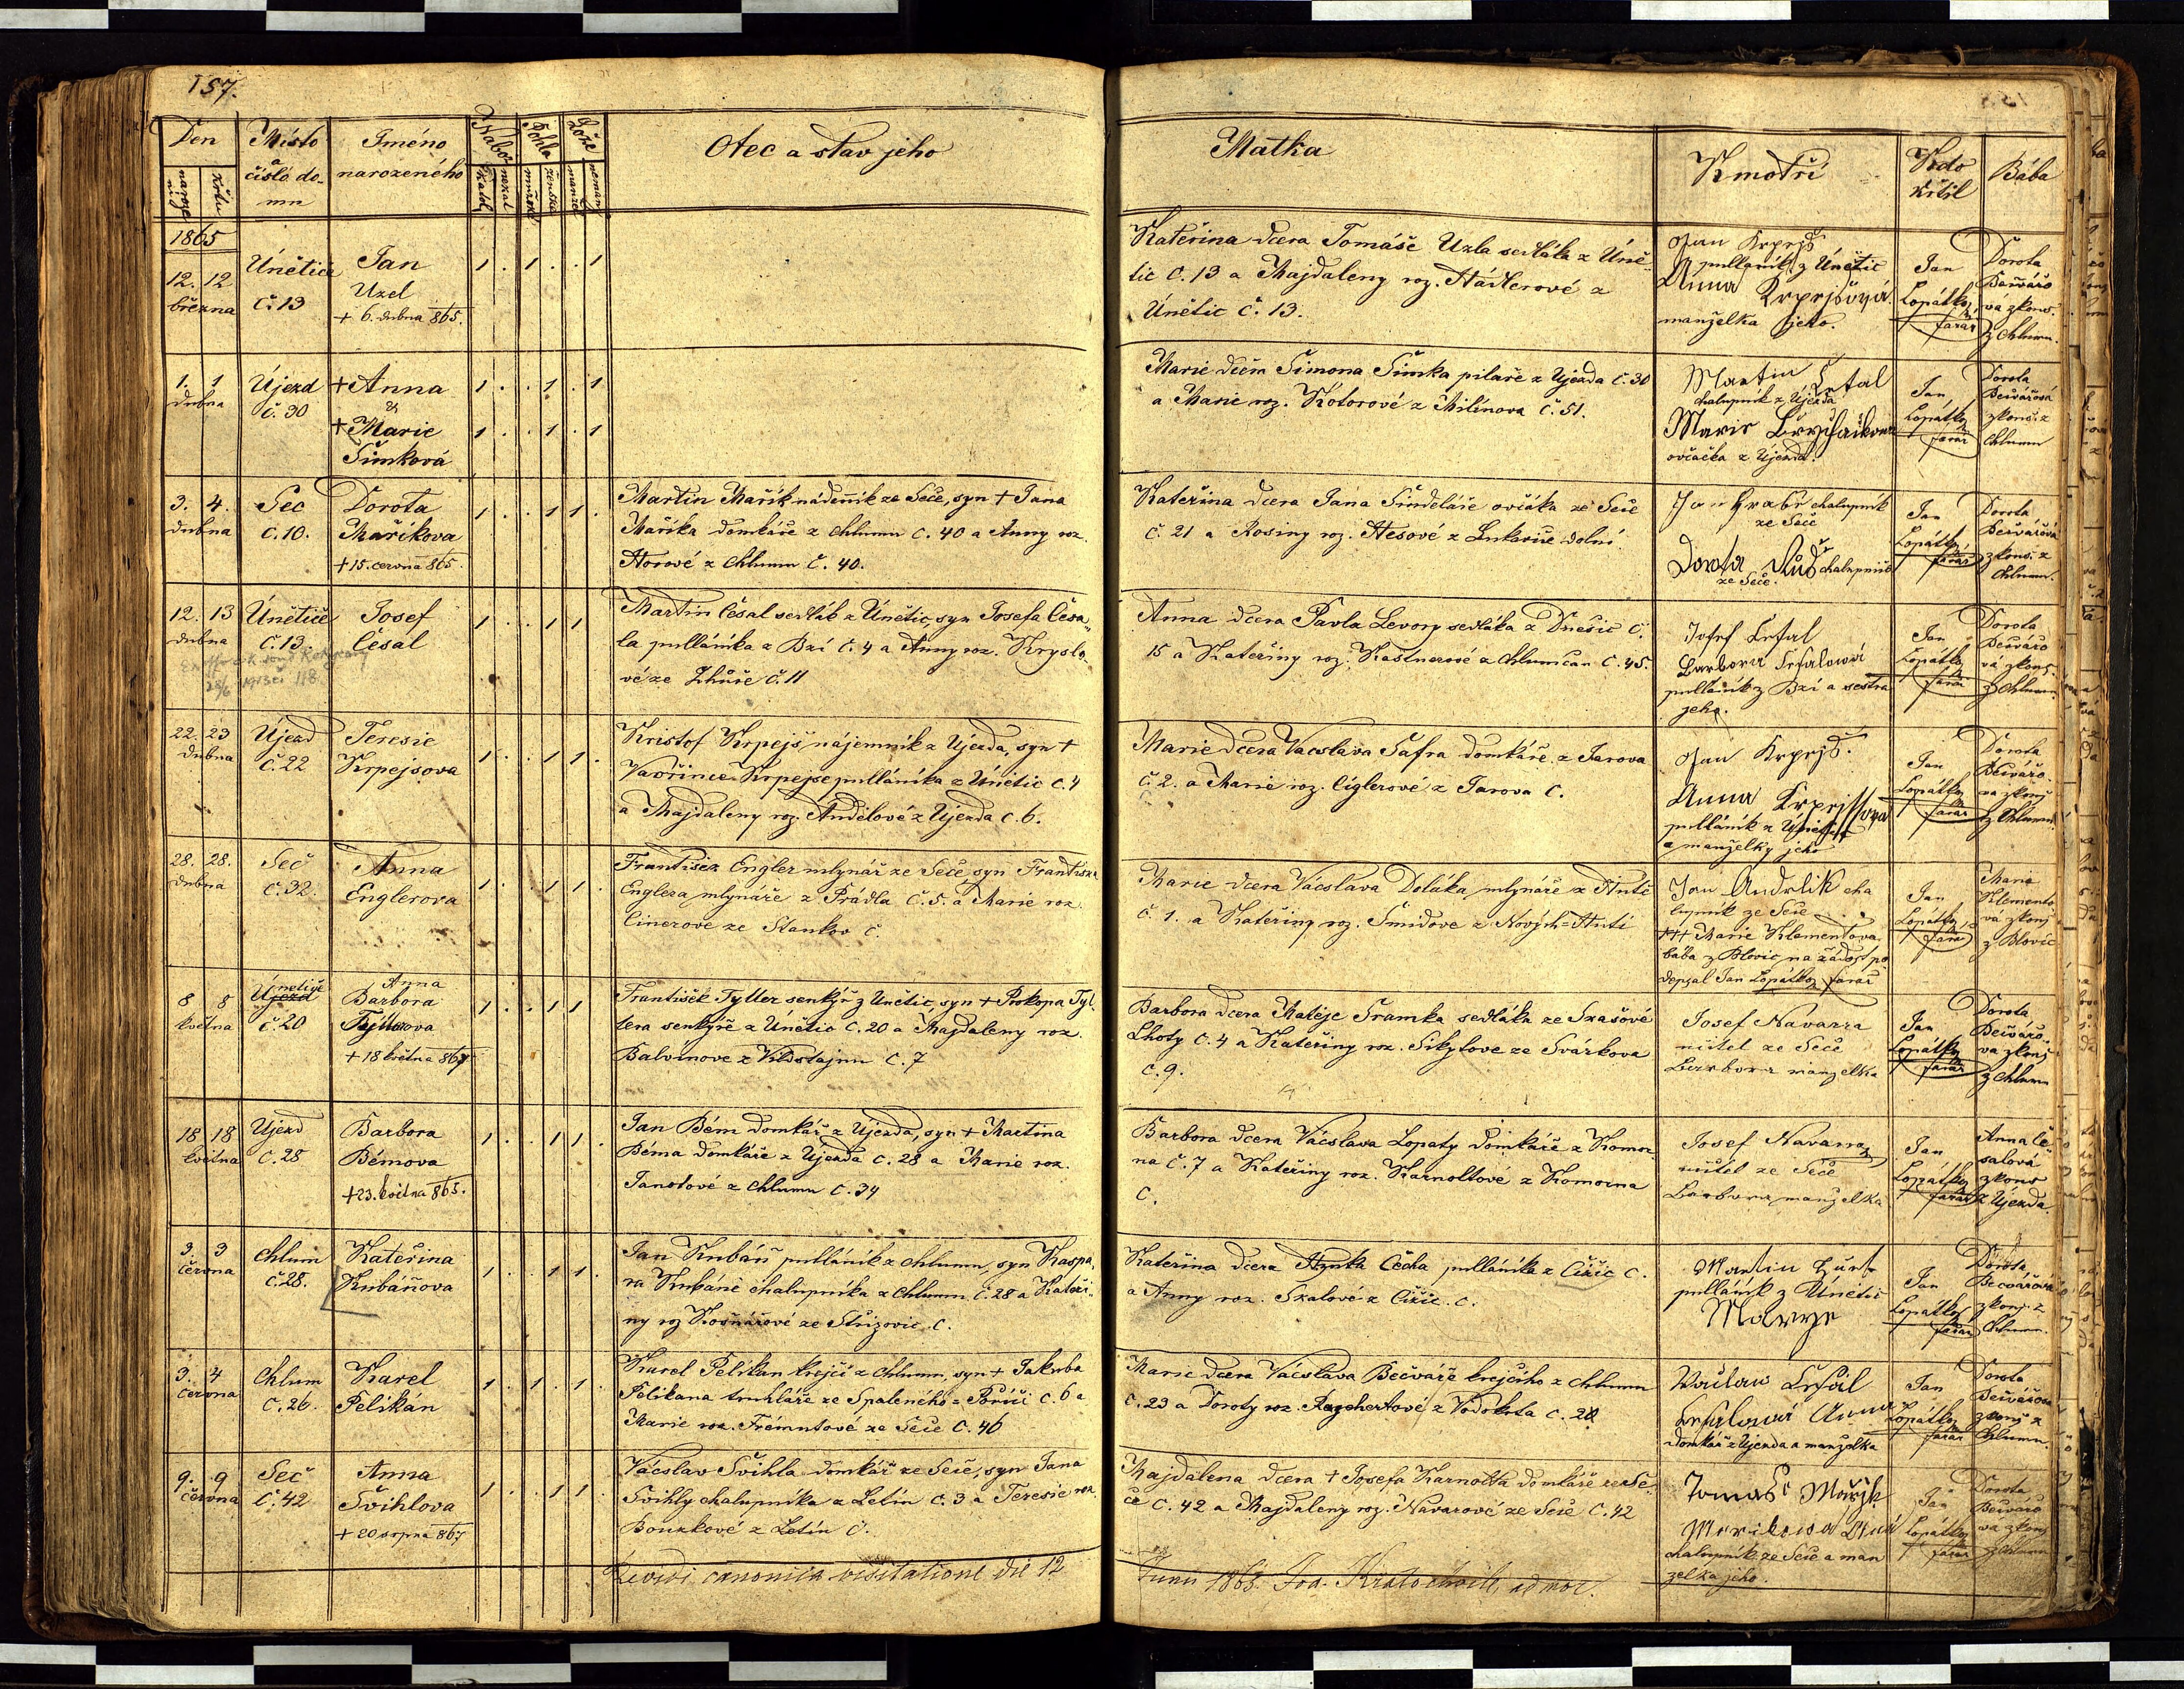 157.
Den
Místo
a
číslo do-
mu
Jméno
narozeného
Nábož
Pohla
Lože
naroze
ní
křtu
katol
nekat
mužské
ženské
manžel
nemanž
Otec a stav jeho
Matka
Kmotři
Kdo
křtil
Bába
1865
12. 12
března
Únětice
č. 13
Jan
Uzel
+ 6. dubna 865.
1 . 1 . . 1
Kateřina dcera Tomáše Uzla sedláka z Úně-
tic č. 13 a Majdaleny roz.
Únětic č. 13.
Jan Krpejš
pullánik z Únětic
Anna Krpejšová
manželka jeho.
Jan
Lopatky
farář
Dorota
Bečvářo
vá zkouš.
z Chlumu.
1. 1
dubna
Újezd
č. 30
+ Anna
&
+ Marie
Šimková
1 . . 1 . 1
1 . . 1 . 1
Marie dcera Šimona Šimka pilaře z Újezda č. 30
a Marie roz. Kotorové z Milínova č. 51.
Martin
chalupník z Újezda
Marie
ovčačka z Újezda.
Jan
Lopatky
farář
Dorota
Bečvářová
zkouš. z
Chlumu
3. 4.
dubna
Seč
č. 10.
Dorota
Maříkova
+ 15. června 865.
1 . . 1 1 .
Martin Mařík nádeník ze Seče, syn + Jana
Maříka domkáře z Chlumu č. 40 a Anny roz.
Horové z Chlumu č. 40.
Kateřina dcera Jana Šindeláře ovčáka ze Seče
č. 21 a Rosiny roz. Hesové z Lukavice dolní.
Jan Hrabě chalupník
ze Seče
Dorota chalupnice
ze Seče.
Jan
Lopatky
farář
Dorota
Bečvářová
zkouš. z
Chlumu.
12. 13
dubna
Únětice
č. 13.
Josef
Česal
1 . 1 1
Martin Česal sedlák z Únětic, syn Josefa Česa-
la pulláníka z Bzí č. 4 a Anny roz. Kryslo-
vé ze Zhůře č. 11
Anna dcera Pavla Levory sedláka z Dnešic č.
15 a Kateřiny roz. Kastnerové z Chlumčan č. 45.
Josef Česal
Barbora Česalowá
pullánik z Bzí a sestra
jeho.
Jan
Lopatky
farář
Dorota
Bečvářo
vá zkouš.
z Chlumu.
22. 23
dubna
Újezd
č. 22
Teresie
Krpejsova
1 . . 1 1 .
Kristof Krpejš nájemník z Újezda, syn +
Vavřince Krpejse pulláníka z Únětic č. 4
a Majdaleny roz. Andělové z Újezda č. 6.
Marie dcera Vacslava Šafra domkáře z Jarova
č. 2. a Marie roz. Cíglerové z Jarova č.
Jan Krpejš.
Anna Krpejssova
pullánik z Únětic
a manželky jeho
Jan
Lopatky
farář
Dorota
Bečvářo-
va zkouš
z Chlumu.
28. 28.
dubna
Seč
č. 32.
Anna
Englerova
1 . . 1 1 .
František Engler mlynář ze Seče syn Františka
Englera mlynáře z Prádla č. 5. a Marie roz.
Cinerove ze Stankov č.
Marie dcera Vácslava Doláka mlynáře z Hutě
č. 1. a Kateřiny roz. Šmidove z Nových-Hutí
Jan Andrlik cha
lupník ze Seče
+++ Marie Klementova
bába z Blovic na žádost po
depsal Jan Lopatky farář
Jan
Lopatky
farář
Marie
Klemento
vá zkouš
z Blovic
8 8
května
Únětice
Újezd
č. 20
Anna
Barbora
Tyllerova
+ 18 května 867
1 . . 1 1
František Tyller senkýř z Únětic, syn + Prokopa Tyl-
lera senkýře z Únětic č. 20 a Majdaleny roz.
Balvínove z Vildstajnu č. 7
Barbora dcera Matěje Šramka sedláka ze Skašové
Lhoty č. 4 a Kateřiny roz. Sikytove ze Svárkova
č. 9.
Josef Návarra
učitel ze Seče
Barbora manzelka
Jan
Lopatky
farář
Dorota
Bečvářo-
va zkouš
z Chlumu
18 18
května
Újezd
č. 28
Barbora
Bémova
+ 23. května 865.
1 . . 1 1 .
Jan Bém domkář z Újezda, syn + Martina
Béma domkáře z Újezda č. 28 a Marie roz.
Janotové z Chlumu č. 34
Barbora dcera Vácslava Lopaty domkáře z Komor-
na č. 7 a Kateřiny roz. Karnoltové z Komorna
č.
Josef Navarra
učitel ze Seče
Barbora manželka
Jan
Lopatky
farář
Anna Če
salová
zkouš
z Újezda.
3. 3
června
Chlum
č. 28.
Kateřina
Kubáňova
1 . . 1 1 .
Jan Kubáň pullánik z Chlumu, syn Kaspa-
ra Kubáně chalupníka z Chlumu č. 28 a Kateři-
ny roz Košnářové ze Střizovic č.
Kateřina dcera Hynka Čecha pulláníka z Čižic č.
a Anny roz. Skalové z Čižic. č.
Martin
pullánik z Únětic
Marye
Jan
Lopatky
farář
Dorota
Bečvářová
zkouš. z
Chlumu.
3. 4
června
Chlum
č. 26.
Karel
Pelikán
1 . 1 . 1 .
Karel Pelikan krejčí z Chlumu, syn + Jakuba
Pelikana truhláře ze Spaleného-Poříčí č. 6 a
Marie roz. Frémutové ze Seče č. 46
Marie dcera Vácslava Bečváře krejčího z Chlumu
č. 23 a Doroty roz. z Vodokrt č. 28
Waclaw Česal
Česalowá Anna
domkář z Újezda a manželka
Jan
Lopatky
farář
Dorota
Bečvářova
zkouš z
Chlumu.
9. 9
června
Seč
č. 42
Anna
Švihlova
+ 20 srpna 867
1 . . 1 1 .
Vácslav Švihla domkář ze Seče, syn Jana
Svihly chalupníka z Letin č. 3 a Teresie roz.
Bouzkové z Letin č.
Majdalena dcera + Josefa Karnolta domkáře ze Se-
če č. 42 a Majdaleny roz. Navarové ze Seče č. 42
Tomáš Mařjk
chalupník ze Seče a man
zelka jeho.
Jan
Lopatky
farář
Dorota
Bečvářo
va zkouš
z Chlumu
Revidi canonica visitatione die 12
Junii 1868. Joa. Kratochvile